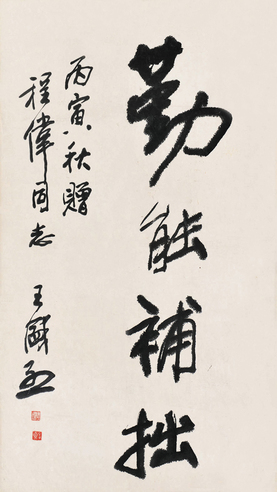 勤能補拙
丙寅秋贈
程偉同志
王國烈